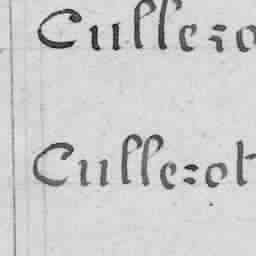 Culle=o
Culle=ot